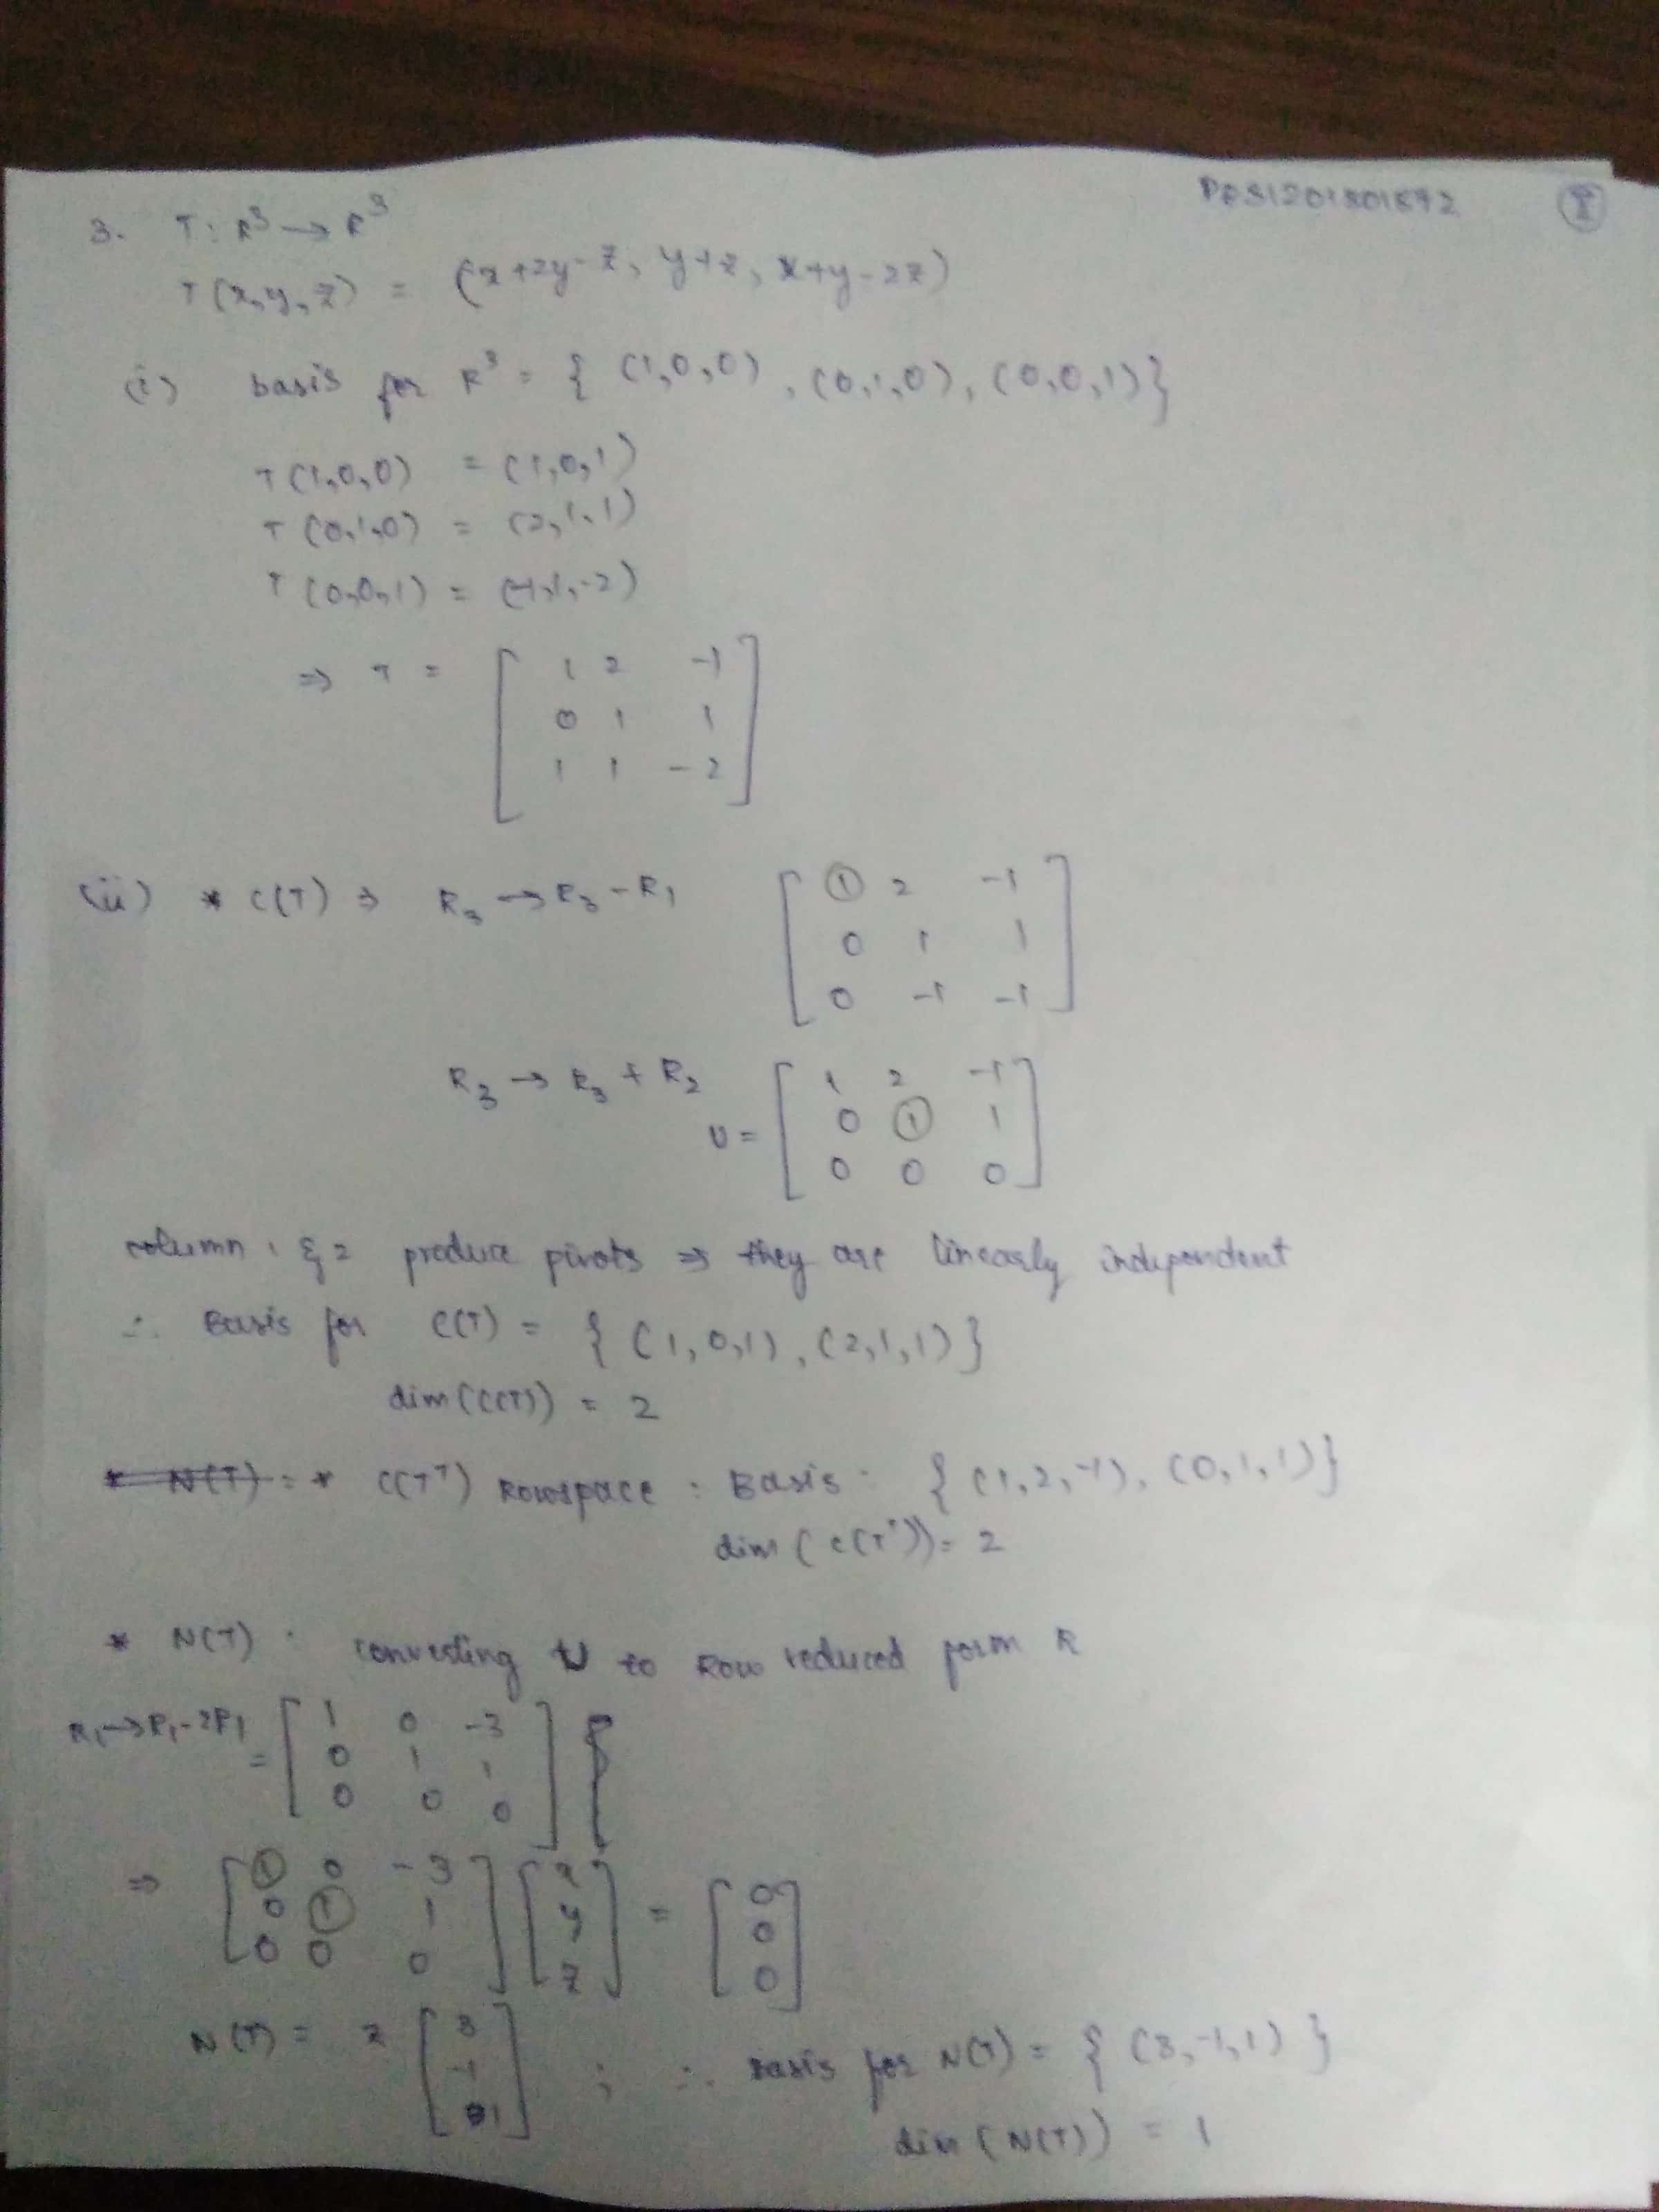 PES1201801892 8
3. T: R³ → R³
T(x,y,z) = (x+2y-z, y+z, x+y-2z)
(i) basis for R³ = { (1,0,0), (0,1,0), (0,0,1)}
T(1,0,0) = (1,0,1)
T(0,1,0) = (2,1,1)
T(0,0,1) = (-1,1,-2)
⇒ T = [ 1 2 -1
0 1 1
1 1 -2 ]
(ii) * C(T) ⇒ R₃ → R₃ - R₁ [ 1 2 -1
0 1 1
0 -1 -1 ]
R₃ → R₃ + R₂
U = [ 1 2 -1
0 1 1
0 0 0 ]
column 1 & 2 produce pivots ⇒ they are linearly independent
∴ Basis for C(T) = { (1,0,1), (2,1,1)}
dim(C(T)) = 2
* N(T) : * C(Tᵀ) Rowspace : Basis : { (1,2,-1), (0,1,1)}
dim(C(Tᵀ)) = 2
* N(T) : converting U to Row reduced form R
R₁→R₁-2R₁ = [ 1 0 -3
0 1 1
0 0 0 ]
⇒ [ 1 0 -3
0 1 1
0 0 0 ] [ x
y
z ] = [ 0
0
0 ]
N(T) = z [ 3
-1
1 ] ; ∴ Basis for N(T) = { (3,-1,1) }
dim(N(T)) = 1